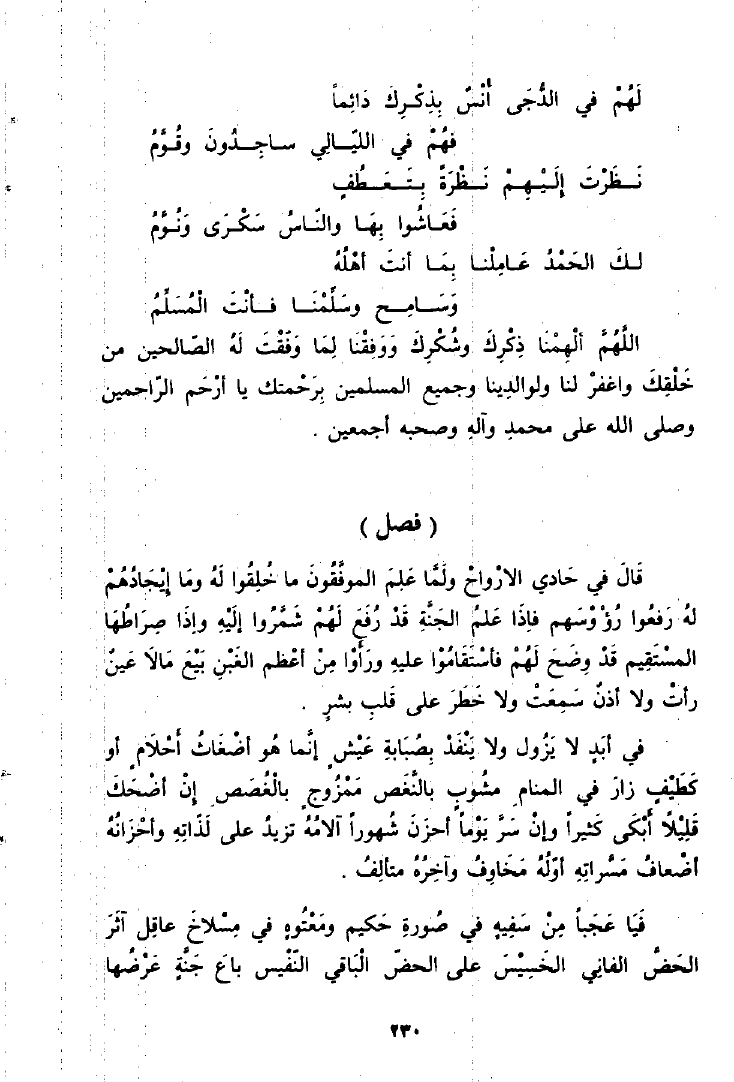 لَهُمْ في الدُّجَى أُنْسٌ بِذِكْرِكَ دَائِماً
فهُمْ في الليَّالِي ساجِدُونَ وقُوَّمُ
نَظَرْتَ إِلَيْهِمْ نَظْرَةً بِتَعَطُّفٍ
فَعَاشُوا بِهَا والنَّاسُ سَكْرَى وَنُوَّمُ
لكَ الحَمْدُ عَامِلْنا بِمَا أنتَ أهْلُهُ
وَسَامِح وسَلِّمْنَا فأنْتَ الْمُسَلِّمُ
اللَّهُمَّ ألْهِمْنَا ذِكْرِكَ وشُكْرِكَ وَوَفِقْنَا لِمَا وَفَّقْتَ لَهُ الصّالحين من
خَلْقِكَ واغفرْ لنا ولوالدِينا وجميع المسلمين بِرَحْمتك يا أرْحَم الرّاحمين
وصلى الله على محمدِ وآلهِ وصحبه أجمعين .
( فصل )
قَالَ في حَادي الارْواحْ ولَمَّا عَلِمَ الموفَّقُونَ ما خُلِقُوا لَهُ ومَا إِيْجَادُهُمْ
لهُ رَفعُوا رُؤْوْسَهم فإذَا علمُ الجَنَّةِ قَدْ رُفَعَ لَهُمْ شَمَّرُوا إلَيْهِ وإذَا صِرَاطُهَا
المسْتَقِيم قَدْ وضَحَ لَهُمْ فأسْتَقَامُوْا عليهِ ورَأوْا مِنْ أعْظم الغَبْنِ بَيْعَ مَالَا عَينٌ
رأتْ ولا أذنٌ سَمِعَتْ ولا خَطَرَ على قَلبِ بشرٍ .
في أبَدٍ لا يَزُول ولا يَنْفَدْ بِصُبَابةِ عَيْشٍ إنَّما هُو أضْغَاثُ أحْلَامٍ أو
كَطَيْفٍ زارَ في المنامِ مشُوبٍ بالنَّغَصِ مَمْزُوجٍ بالْغُصَصِ إنْ أضْحَكَ
قَلِيْلاً أَبْكَى كَثيراً وإنْ سَرَّ يَوْماً أحزَنَ شُهوراً آلامُهُ تزيدُ على لَذّاتِهِ وأحْزَانُهُ
أضْعافُ مَسَّراتِهِ أوّلُهُ مَخَاوِفُ وآخِرُهُ متألِفُ .
فَيَا عَجَباً مِنْ سَفِيهٍ في صُورةِ حَكيم ومَعْتُوهٍ في مِسْلاخَ عاقِل آثَرَ
الحَضَّ الفانِي الخَسِيْسَ على الحضّ الْبَاقي النَّفْيس باعَ جَنَّةٍ عَرْضُها
٢٣٠